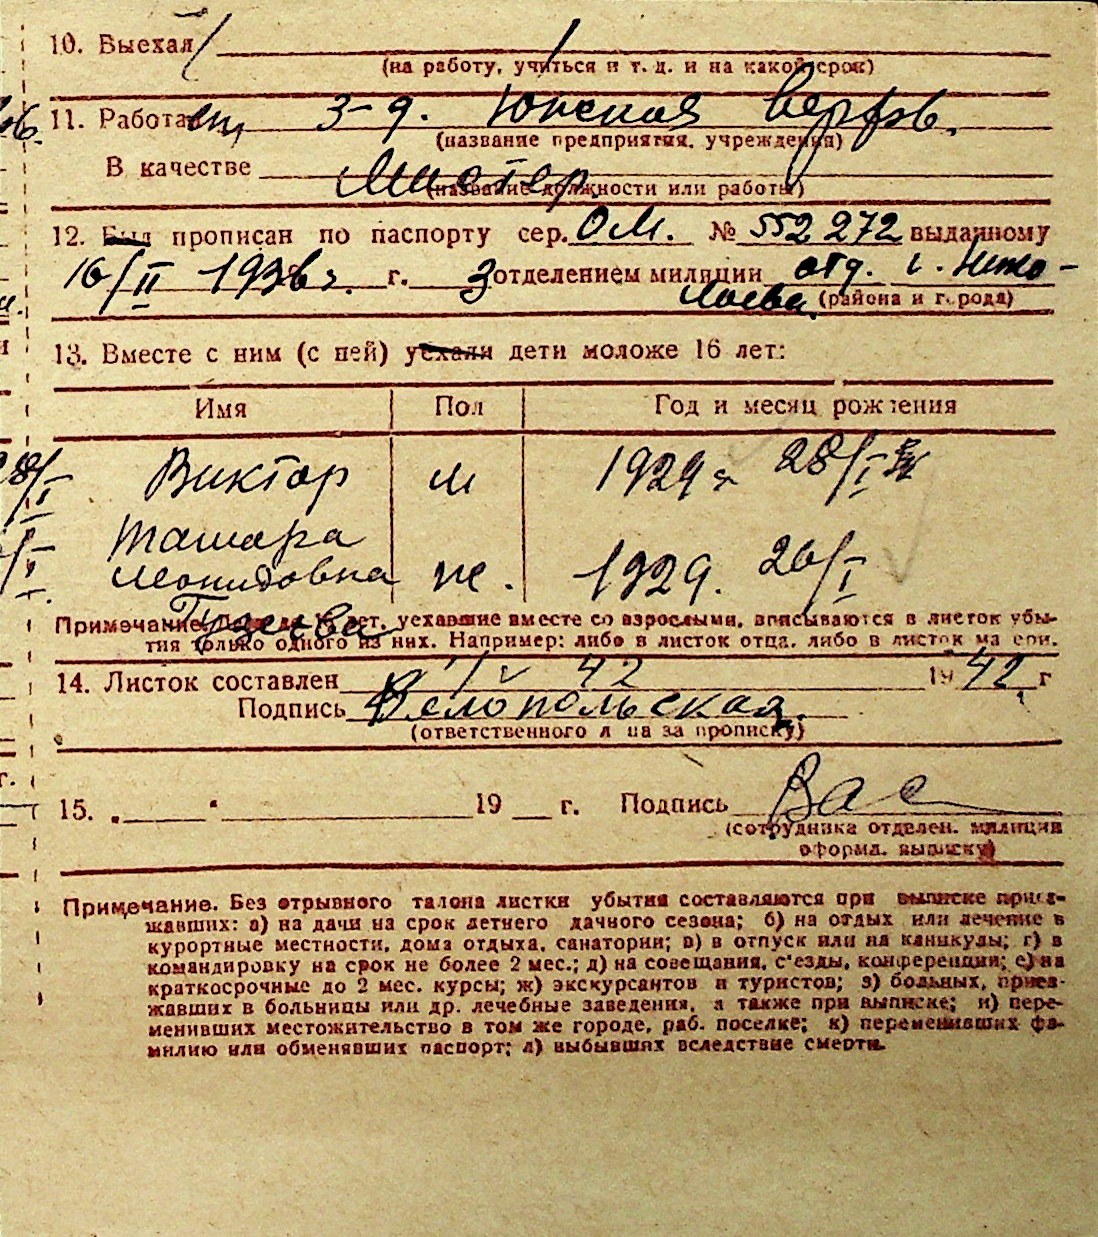 10. Выехал
(на работу, учиться и т. д. и на какой срок)
11. Работа
з-д. Южная верфь.
(название предприятия, учреждения)
В качестве Мастер
(название должности или работы)
12. Был прописан по паспорту сер. ОМ. № 552272 выданному
16/II 1936 г. г. 3 отделением милиции отд. г. Нико-
лаева. (района и города)
13. Вместе с ним (с ней) уехали дети моложе 16 лет:
Имя Пол Год и месяц рождения
Виктор м 1929 г 28/I
Тамара
Леонидовна ж. 1929. 26/I
Гусева
Примечание. Дети до 16 лет, уехавшие вместе со взрослыми, вписываются в листок убы-
тия только одного из них. Например: либо в листок отца, либо в листок матери.
14. Листок составлен 1/V 42 1942 г
Подпись Велопольская.
(ответственного лица за прописку)
15. 19 г. Подпись Вас
(сотрудника отделен. милиции
оформл. выписку)
Примечание. Без отрывного талона листки убытия составляются при выписке приез-
жавших: а) на дачи на срок летнего дачного сезона; б) на отдых или лечение в
курортные местности, дома отдыха, санатории; в) в отпуск или на каникулы; г) в
командировку на срок не более 2 мес.; д) на совещания, с'езды, конференции; е) на
краткосрочные до 2 мес. курсы; ж) экскурсантов и туристов; з) больных, приез-
жавших в больницы или др. лечебные заведения, а также при выписке; и) пере-
менивших местожительство в том же городе, раб. поселке; к) переменивших фа-
милию или обменявших паспорт; л) выбывших вследствие смерти.